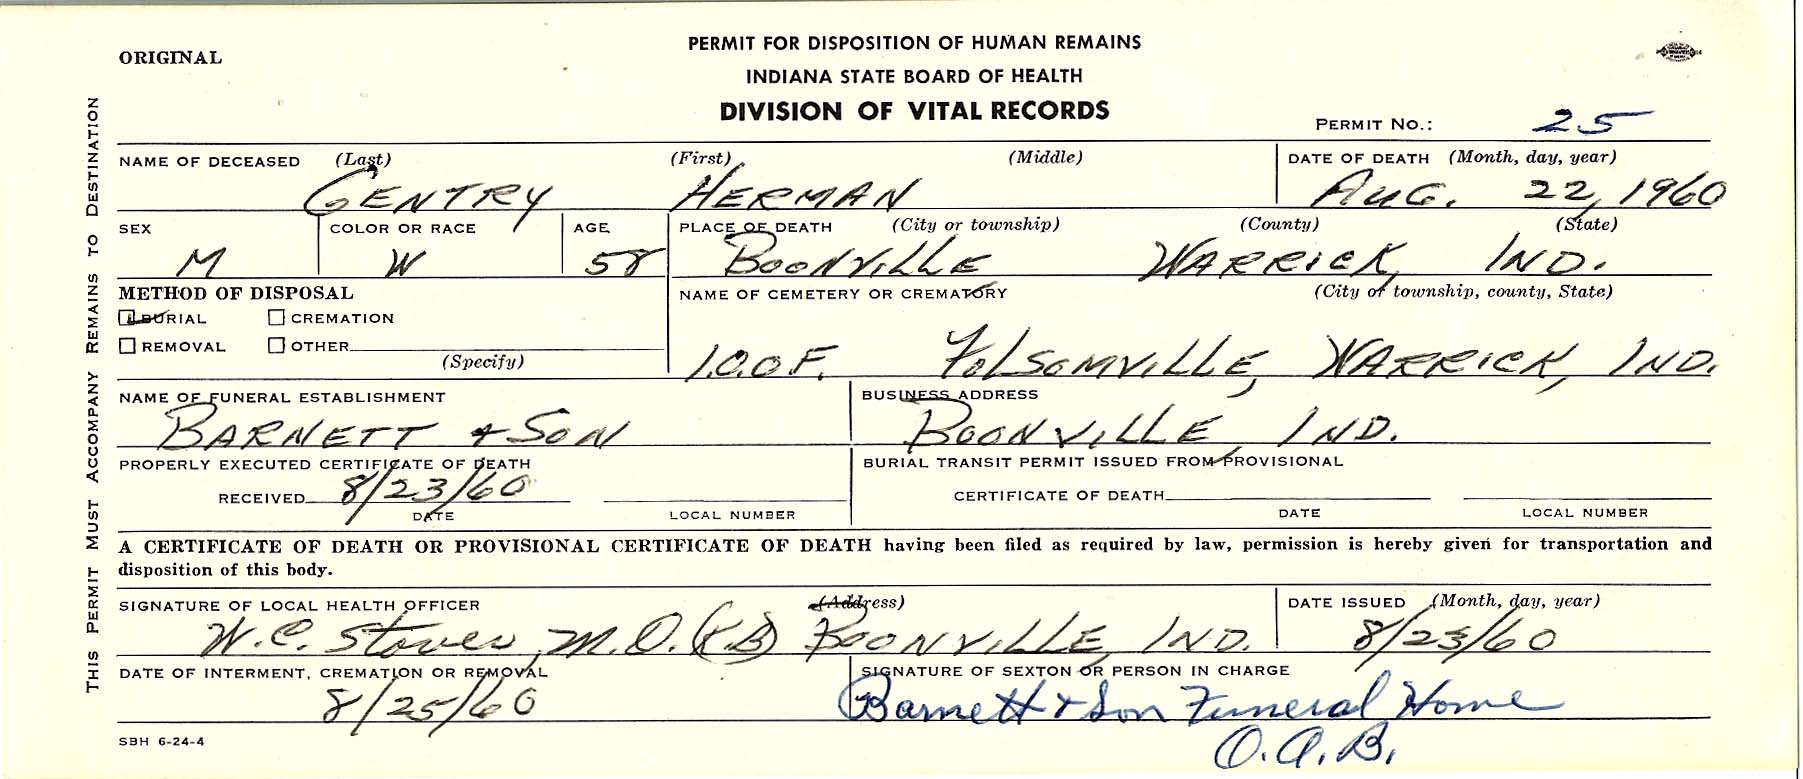 ORIGINAL
PERMIT FOR DISPOSITION OF HUMAN REMAINS
INDIANA STATE BOARD OF HEALTH
DIVISION OF VITAL RECORDS
PERMIT NO.: 25
THIS PERMIT MUST ACCOMPANY REMAINS TO DESTINATION
NAME OF DECEASED (Last) (First) (Middle) DATE OF DEATH (Month, day, year)
GENTRY HERMAN AUG. 22, 1960
SEX COLOR OR RACE AGE PLACE OF DEATH (City or township) (County) (State)
M W 58 BOONVILLE WARRICK, IND.
METHOD OF DISPOSAL NAME OF CEMETERY OR CREMATORY (City or township, county, State)
BURIAL CREMATION
REMOVAL OTHER
(Specify)
I.O.O.F. FOLSOMVILLE, WARRICK, IND.
NAME OF FUNERAL ESTABLISHMENT BUSINESS ADDRESS
BARNETT & SON BOONVILLE, IND.
PROPERLY EXECUTED CERTIFICATE OF DEATH BURIAL TRANSIT PERMIT ISSUED FROM PROVISIONAL
RECEIVED 8/23/60 CERTIFICATE OF DEATH
DATE LOCAL NUMBER DATE LOCAL NUMBER
A CERTIFICATE OF DEATH OR PROVISIONAL CERTIFICATE OF DEATH having been filed as required by law, permission is hereby given for transportation and
disposition of this body.
SIGNATURE OF LOCAL HEALTH OFFICER (Address) DATE ISSUED (Month, day, year)
W.C. Stover, M.D. (KB) BOONVILLE, IND. 8/23/60
DATE OF INTERMENT, CREMATION OR REMOVAL SIGNATURE OF SEXTON OR PERSON IN CHARGE
8/25/60 Barnett & Son Funeral Home
O.A.B.
SBH 6-24-4